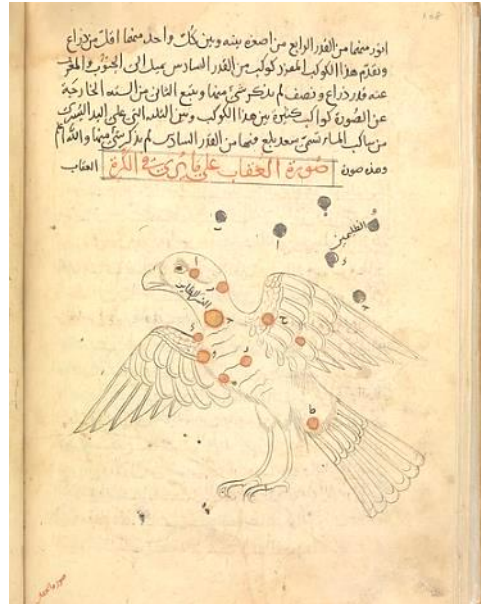 انور منها من القدر الرابع من اصغره بينه وبين كل واحد منهما اقل من ذراع
ويتقدم هذا الكوكب المفرد كوكب من القدر السادس يميل الى الجنوب والمغرب
عنه قدر ذراع ونصف لم يذكر شئ منها ويتبع الثانى من الستة الخارجة
عن الصورة كواكب كثيرة بين هذا الكوكب وبين الثلثه التى على اليد اليسرى
من ساكب الماء تسمى سعد بلع فيها من القدر السادس لم يذكر شئ منها والله اعلم
وهذه صورة
صورة العقاب على ما يرى فى الكرة
العقاب
الظليمين
النسر الطاير
صورة العقاب